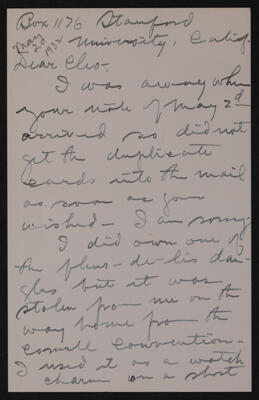 Box 1176 Stanford
University, Calif.
May
20
1932
Dear Cleo.
I was away when
your note of May 2d
arrived so did not
get the duplicate
cards into the mail
as soon as you
wished - I am sorry.
I did own one of
the fleur-de-lis dan-
gles but it was
stolen from me on the
way home from the
Cornell Convention -
I used it as a watch
charm on a short